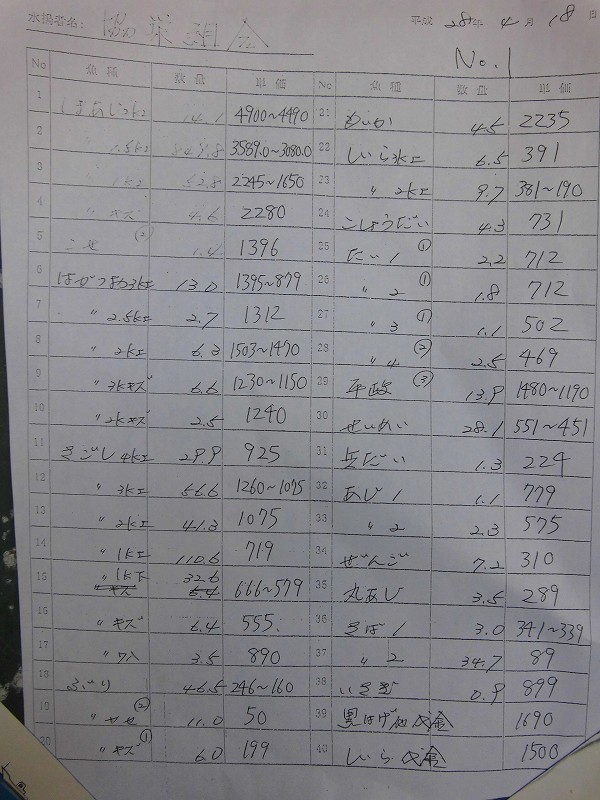 水揚者名: 協栄組合
平成 28年 4月 18日
No.1
No 魚種 数量 単価
1 しまあじ2kエ 14.1 4900~4490
2 1.5kエ 3589.0~3080.0
3 1kエ 52.8 2245~1650
4 〃 キズ 4.6 2280
5 こせ ② 1.4 1396
6 はがつお3kエ 13.0 1395~879
7 〃 2.5kエ 2.7 1312
8 〃 2kエ 6.3 1503~1470
9 〃 3kキズ 6.6 1230~1150
10 〃 2kキズ 2.5 1240
11 さごし4kエ 29.9 925
12 〃 3kエ 56.6 1260~1075
13 〃 2kエ 41.3 1075
14 〃 1kエ 110.6 719
15 〃 1k下 32.6 666~579
16 〃 キズ 6.4 555
17 〃 ワハ 3.5 890
18 ぶり 46.5 246~160
19 〃 ヤセ ② 11.0 50
20 〃 キズ ① 6.0 199
No 魚種 数量 単価
21 めいか 4.5 2235
22 しいら3kエ 6.5 391
23 〃 2kエ 9.7 381~190
24 こしょうだい 4.3 731
25 だい1 ① 2.2 712
26 〃 2 ① 1.8 712
27 〃 3 ① 1.1 502
28 〃 4 ② 2.5 469
29 平政 ③ 13.9 1480~1190
30 せいめい 28.1 551~451
31 兵だい 1.3 224
32 あじ1 1.1 779
33 〃 2 2.3 575
34 ぜんご 7.2 310
35 丸あじ 3.5 289
36 さば1 3.0 341~339
37 〃 2 34.7 89
38 いさぎ 0.9 899
39 1690
40 しいら 代金 1500